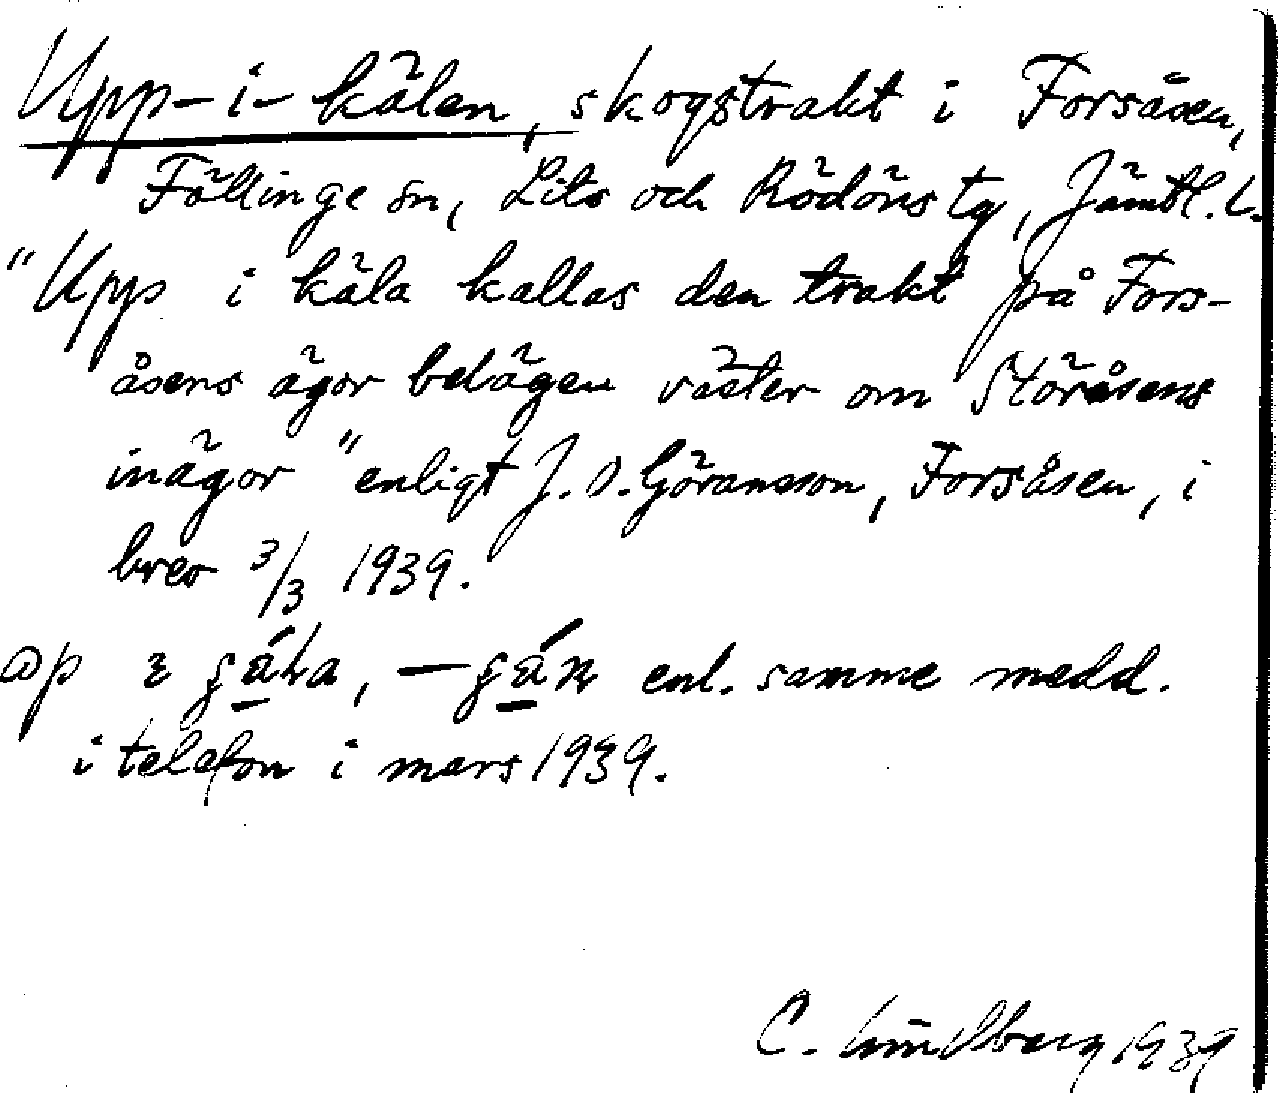 Upp-i-kälen, skogstrakt i Forsåsen,
Föllinge sn, Lits och Rödöns tg, Jämtl. l.
"Upp i käla kallas den trakt på Fors-
åsens ägor belägen väster om Störåsens
inägor" enligt J. O. Göransson, Forsåsen, i
brev 3/3 1939.
enl. samme medd.
i telefon i mars 1939.
C. Lindberg 1939